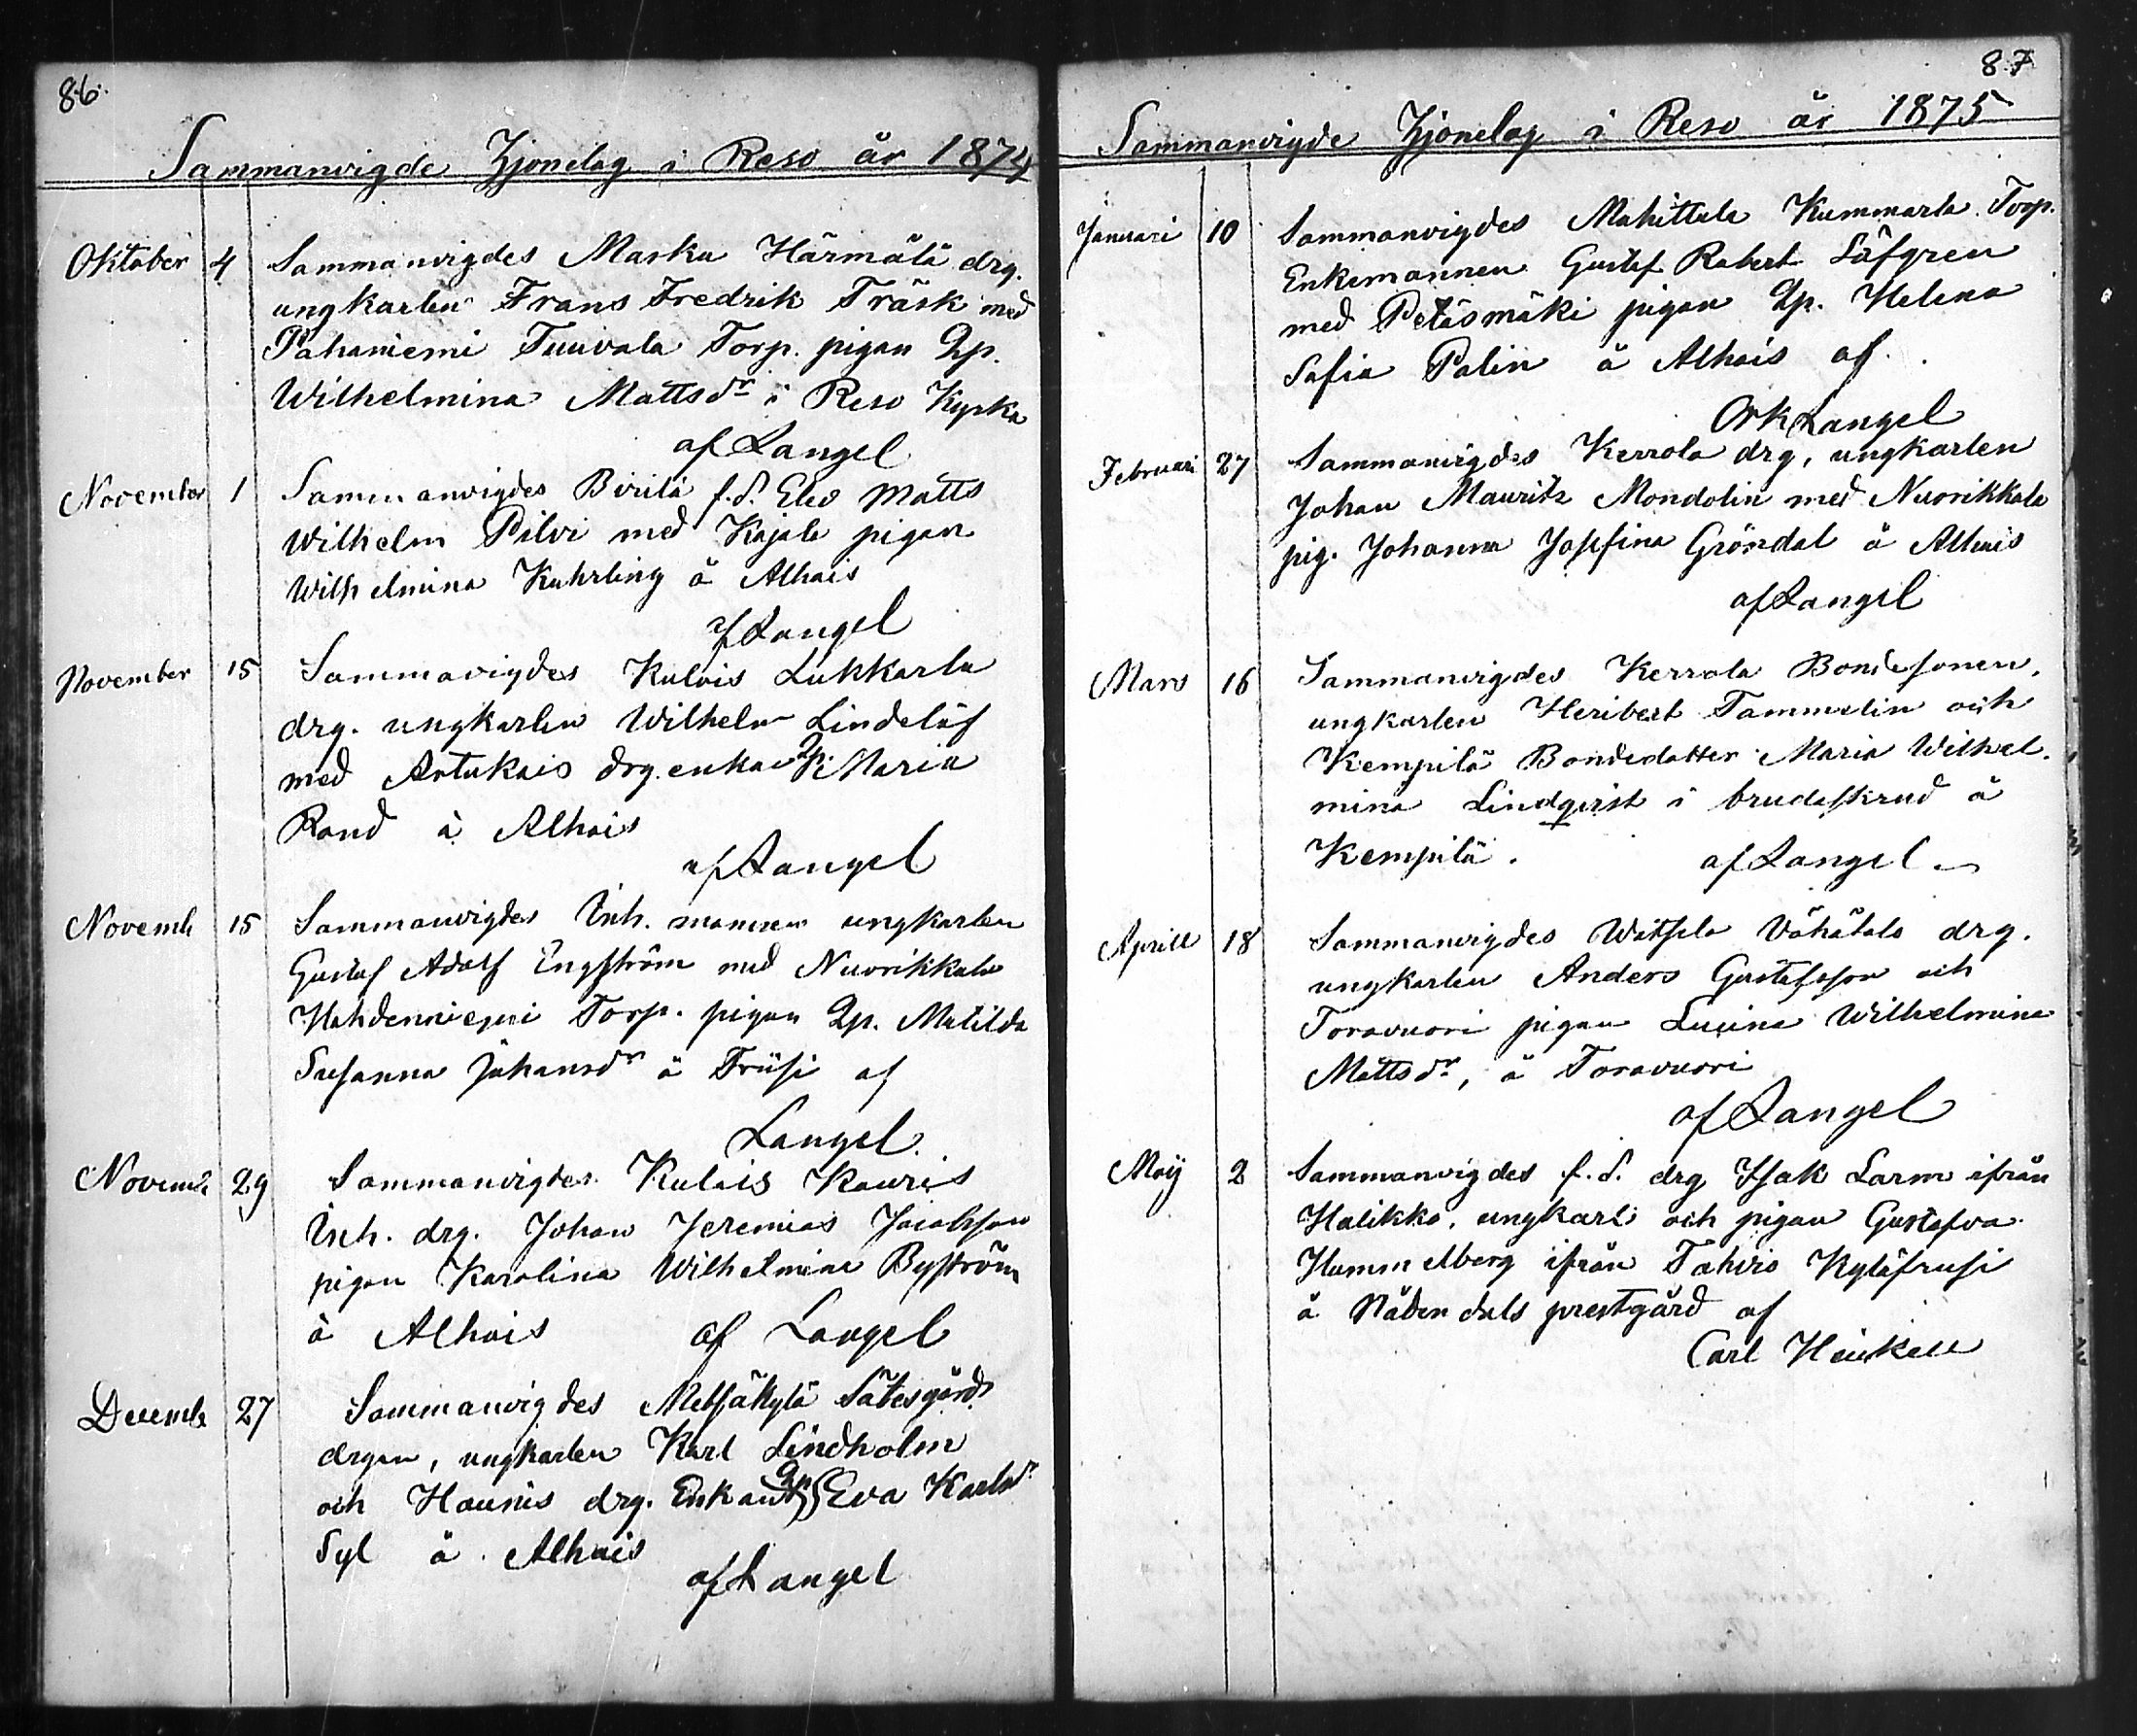 86.
Sammanvigde Hjonelag i Reso år 1874
Oktober 4 Sammanvigdes Masku Härmälä drg.
ungkarlen Frans Fredrik Träsk med
Pahaniemi Tuuvala Torp. pigan Qp.
Wilhelmina Mattsdr i Reso Kyrka
af Langel
November 1 Sammanvigdes Birilä f.d. Elev Matts
Wilhelm Pilvi med Kajala pigan
Wilhelmina Kuhrling å Alhais
af Langel
November 15 Sammavigdes Kulais Lukkarla
drg. ungkarlen Wilhelm Lindelöf
med Artukais drg. enkan Qp. Maria
Rand å Alhais
af Langel
Novemb 15 Sammanvigdes Inh. mannen ungkarlen
Gustaf Adolf Engström med Nuorikkala
Torp. pigan Qp. Matilda
Susanna Johansdr å Friisi af
Langel.
Novemb 29 Sammanvigdes Kulais Kauris
Inh. drg. Johan Jeremias Jacobsson
pigan Karolina Wilhelmina Byström
å Alhais af Langel
Decemb 27 Sammanvigdes Metsäkylä Sätesgård
drgen, ungkarlen Karl Lindholm
och Haunis drg. Enkan Qp Eva Karlsdr
Syl å Alhais
af Langel
87
Sammanvigde Hjonelag i Reso år 1875
Januari 10 Sammanvigdes Mahittula Kummarla Torp.
Enkemannen Gustef Robert Löfgren
med Petäsmäki pigan Qp. Helena
Sofia Palin å Alhais af
Langel
Februari 27 Sammanvigdes Kerrola drg, ungkarlen
Johan Mauritz Mondolin med Nuorikkala
pig. Johanna Josefina Gröndal å Alhais
af Langel
Mars 16 Sammanvigdes Kerrola Bondesonen,
ungkarlen Heribert Tammelin och
Kempilä Bondedotter Maria Wilhel.
mina Lindqvist i brudeskrud å
Kempilä. af Langel
Aprill 18 Sammanvigdes Waisela Vähätalo drg.
ungkarlen Anders Gustafsson och
Toravuori pigan Lucina Wilhelmina
Mattsdr, å Toravuori
af Langel
Maij 2 Sammanvigdes f.d. drg Isak Larm ifrån
Halikko, ungkarl och pigan Gustafva
Hammelberg ifrån Tahvio
å Nådendals prestgård af
Carl Heinkell